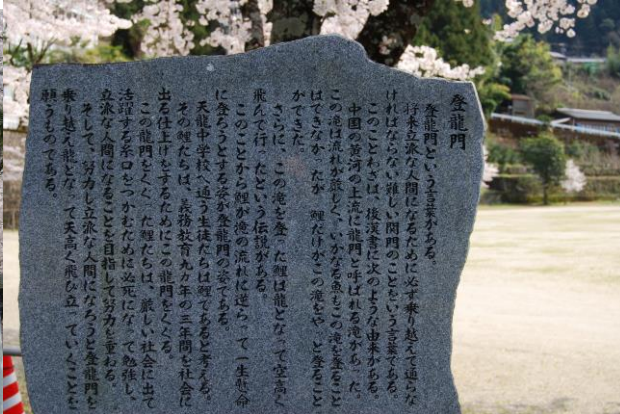 登龍門
登龍門という言葉がある。
将来立派な人間になるために必ず乗り越えて通らな
ければならない難しい関門のことをいう言葉である。
このことわざは、後漢書に次のような由来がある。
中国の黄河の上流に龍門と呼ばれる滝があった。
この滝は流れが厳しく、いかなる魚もこの滝を登ること
はできなかったが、鯉だけがこの滝をやっと登ること
ができた。
さらに、この滝を登った鯉は龍となって空高く
飛んで行ったという伝説がある。
このことから鯉が滝の流れに逆らって一生懸命
に登ろうとする姿が登龍門の姿である。
天龍中学校へ通う生徒たちは鯉であると考える。
その鯉たちは、義務教育九カ年の三年間を社会に
出る仕上げをするためにこの龍門をくぐる。
この龍門をくぐった鯉たちは、厳しい社会に出て
活躍する糸口をつかむために必死になって勉強し、
立派な人間になることを目指して努力を重ねる。
そして、努力し立派な人間になろうと登龍門を
乗り越え龍となって天高く飛び立っていくことを
願うものである。